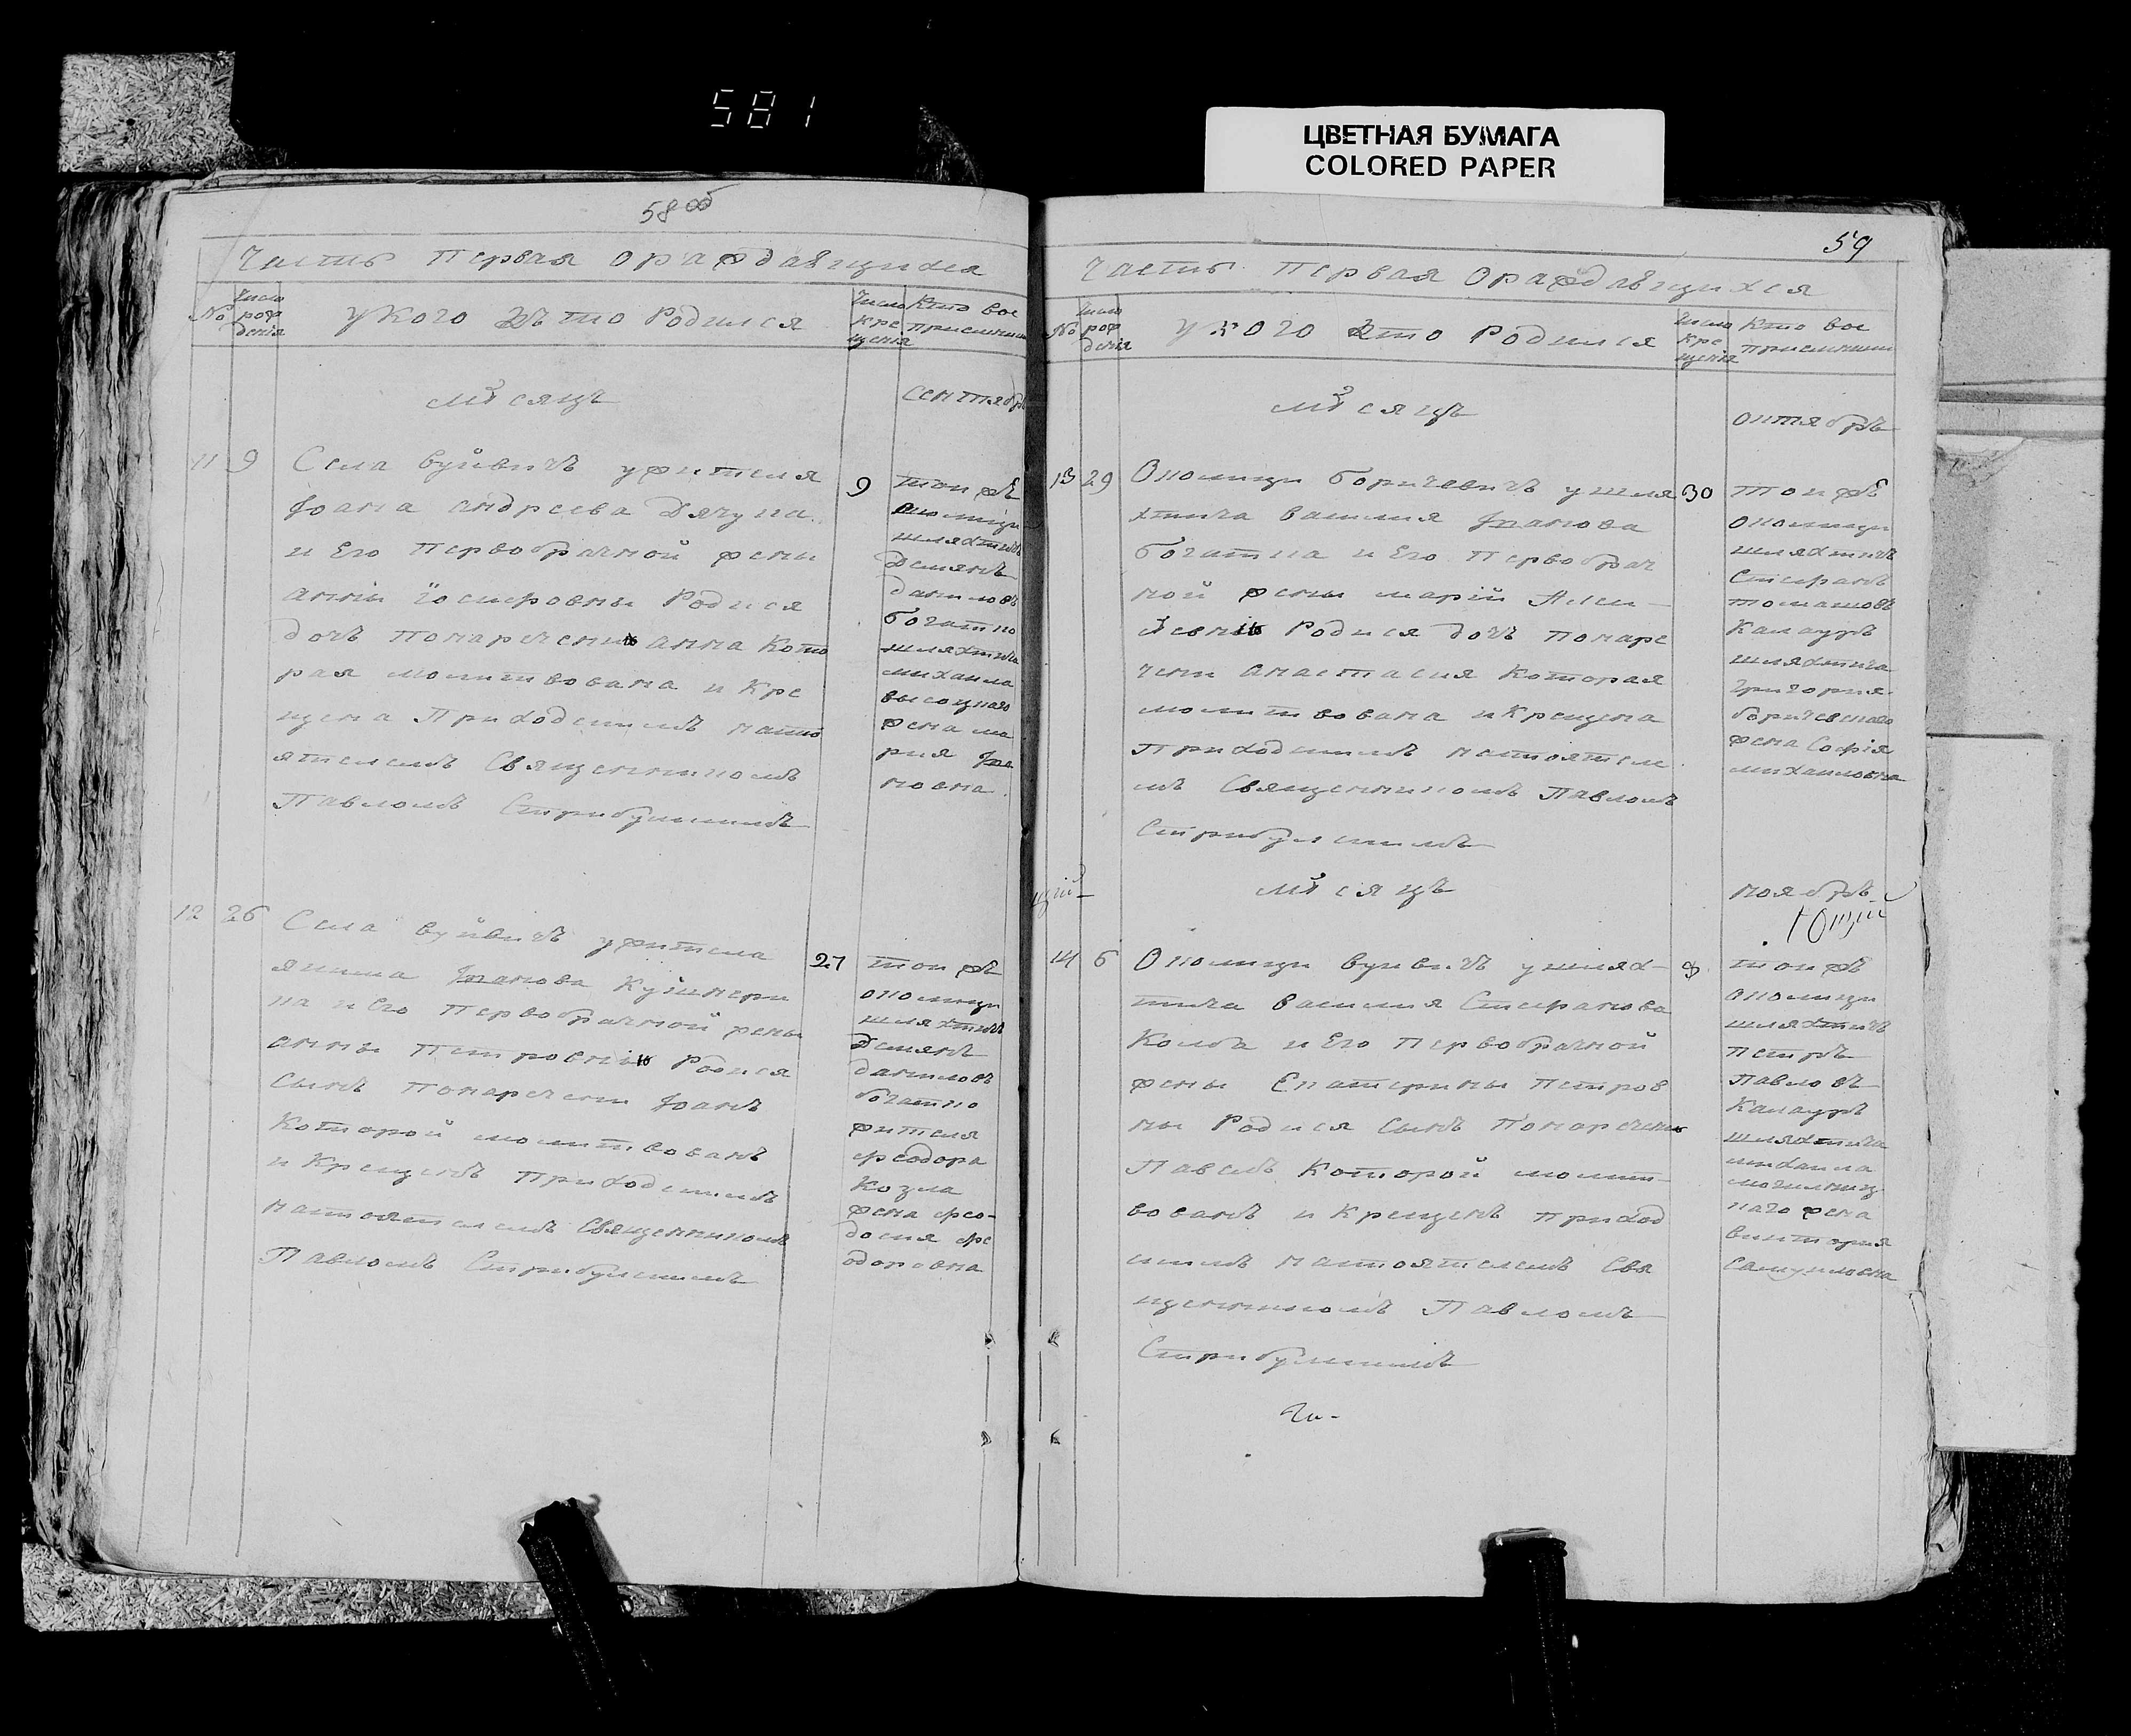 581
ЦВЕТНАЯ БУМАГА
COLORED PAPER
58 об
Часть Первая О раждавщихся
№
Число рождения
У Кого Кто Родился
Число Крещения
Кто вос Приемники
Мѣсяцъ
Сентябрь
11
9
Села вуйвичъ ужителя
Іоана андреева Дячука
и Его Первобрачной жены
анны іосифовны Родися
дочъ Понаречени анна Кото
рая молитвована и Кре
щена Приходскимъ насто
ятелемъ Священникомъ
Павломъ Стрибульскимъ
9
тои жъ
околици
шляхтичъ
Демянъ
даниловъ
богатко
шляхтича
михаила
высоцкаго
жена ма
рия Іоа
новна
12
26
Села вуйвичъ ужитела
якима Іоанова Кушнери
ка и Его Первобрачной жены
анны Петровны Родися
Сынъ Понаречени Іоанъ
Которой молитвованъ
и Крещенъ Приходскимъ
настоятелемъ Священникомъ
Павломъ Стрибульскимъ
27
тои жъ
околици
шляхтичъ
Демянъ
даниловъ
богатко
жителя
феодора
Козла
жена фео-
досия фе
одоровна
59
Часть Первая О раждавщихся
№
Число рождения
У Кого Кто Родился
Число Крещения
Кто вос Приемники
Мѣсяцъ
октябрь
13
29
Околици боричевичъ ушля
хтича василия Іоанова
богатка и Его Первобрач
ной жены марій Алек-
сѣевны Родися дочъ понаре
чени анастасия Которая
молитвована и Крещена
Приходскимъ настоятеле
мъ Священникомъ Павломъ
Стрибульскимъ
30
тои жъ
околици
шляхтичъ
Стефанъ
томашовъ
Калауръ
шляхтича
григория
боричевскаго
жена Софія
михаиловна
Мѣсяцъ
ноябрь
14
6
Околици вуивичъ ушлях-
тича василия Стефанова
Колба и Его Первобрачной
жены Екатерины Петров
ны Родися Сынъ Понаречени
Павелъ Которой молит-
вованъ и Крещенъ приход
скимъ настоятелемъ Свя
щенникомъ Павломъ
Стрибульскимъ
8
тои жъ
околици
шляхтичъ
Петръ
Павловъ
Калауръ
шляхтича
михаила
могилниц
каго жена
виктория
Самуиловна